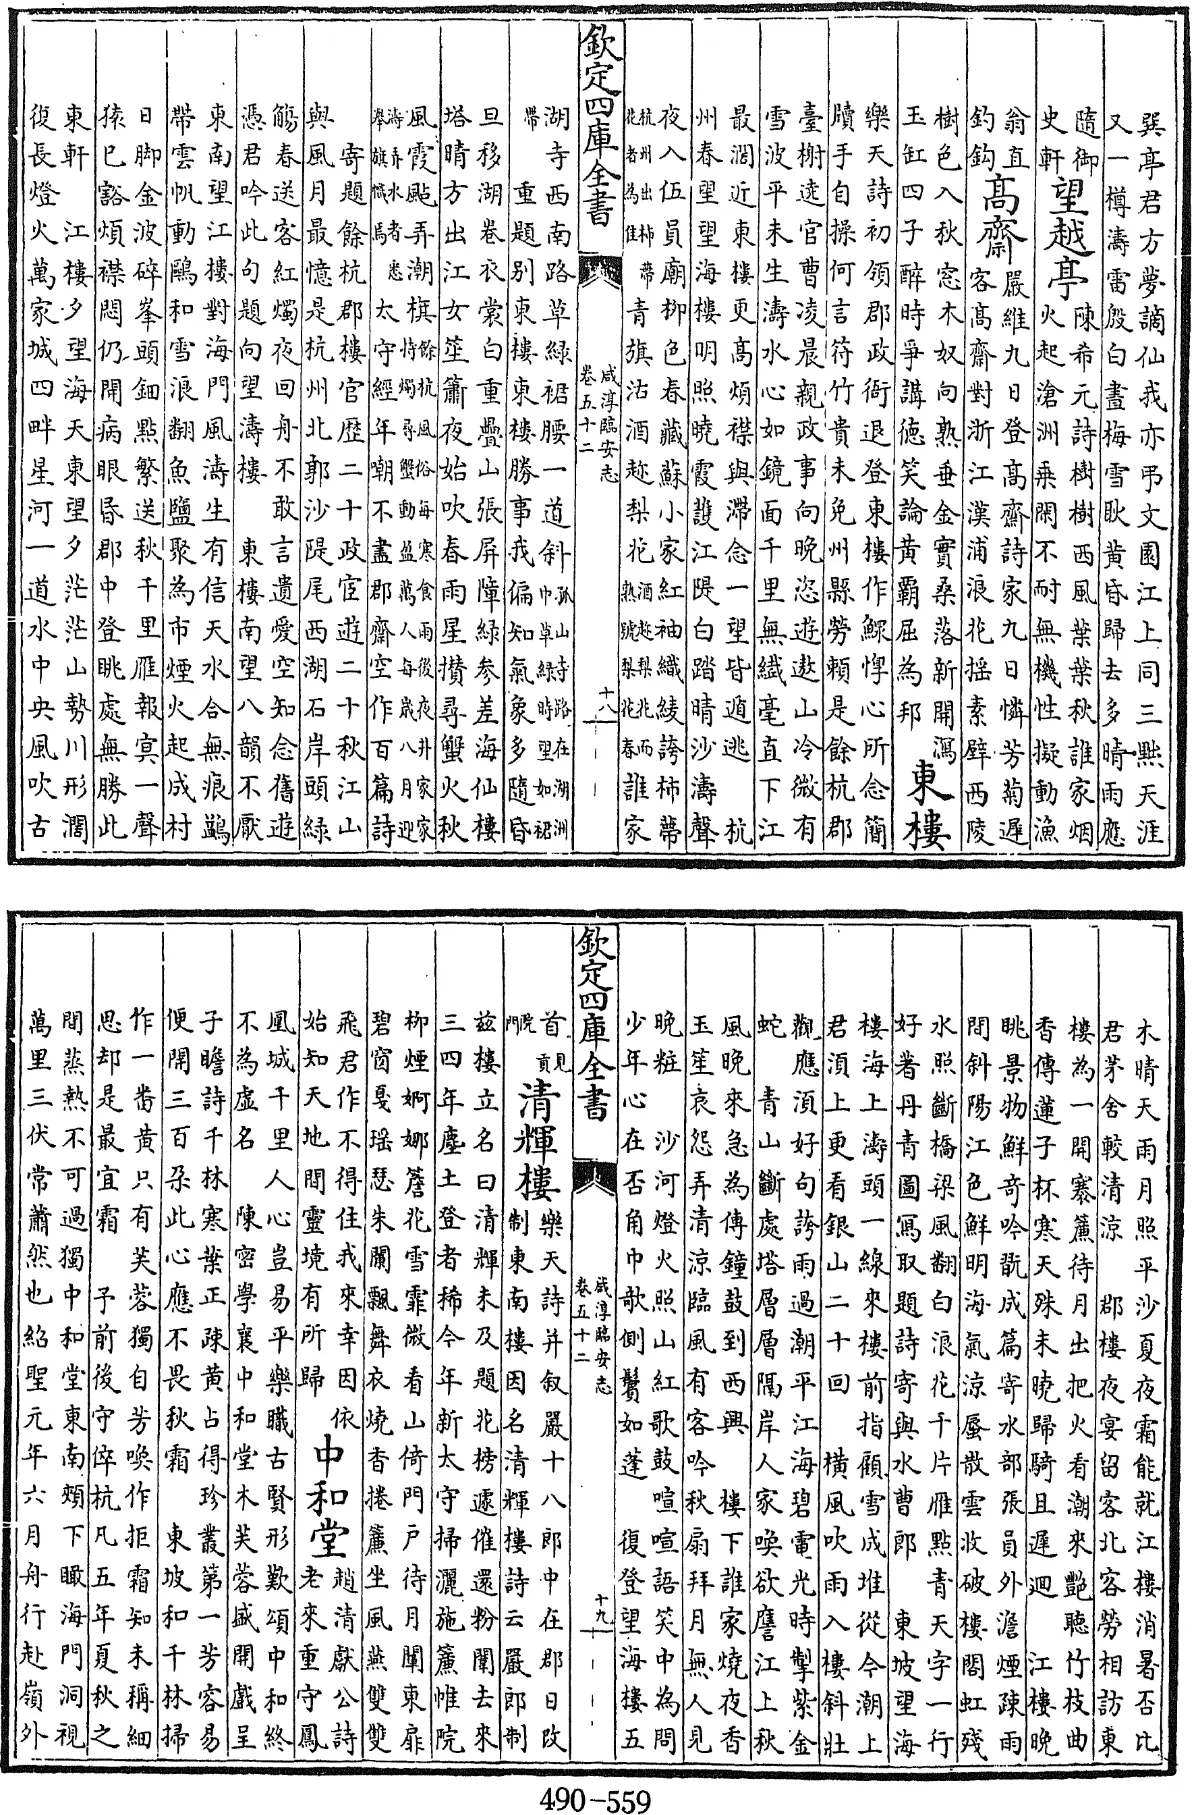 巽亭君方夢謫仙我亦弔文園江上同三㸃天涯
又一樽濤雷殷白晝梅雪耿黄昏歸去多時雨應
隨御
史軒
望越亭
陳希元詩樹樹西風葉葉秋誰家烟
火起滄洲乗閑不耐無機性擬動漁
翁直
釣鈎
髙齋
嚴維九日登髙齋詩家九日憐芳菊遲
客髙齋對浙江漢浦浪花揺素壁西陵
樹色入秋窓木奴向熟垂金實桑落新開瀉
玉缸四子醉時爭講徳笑論黄覇屈為邦
東樓
樂天詩初領郡政衙退登東樓作鰥惸心所念簡
牘手自操何言符竹貴未免州縣勞頼是餘杭郡
臺榭逺官曹凌晨親政事向晚恣遊遨山冷微有
雪波平未生濤水心如鏡面千里無纎毫直下江
最濶近東樓更髙煩襟與滯念一望皆遁逃 杭
州春望望海樓明照曉霞護江隄白踏晴沙濤聲
夜入伍員廟柳色春藏蘇小家紅袖織綾誇柿蔕
杭州出柿蔕
花者為佳
青旗沽酒趂梨花
酒趂梨花而
熟號梨花春
誰家
湖寺西南路草緑裙腰一道斜
孤山寺路在湖洲
中草緑時望如裙
帶
重題别東樓東樓勝事我偏知氣象多隨昏
旦移湖卷衣裳白重疊山張屏障緑參差海仙樓
塔晴方出江女笙簫夜始吹春雨星攅尋蟹火秋
風霞颭弄潮旗
餘杭風俗每寒食雨後夜井家家
持燭尋蟹動盈萬人每嵗八月迎
濤弄水者悉
舉旗幟焉
太守經年嘲不盡郡齋空作百篇詩
寄題餘杭郡樓官歴二十政宦遊二十秋江山
與風月最憶是杭州北郭沙隄尾西湖石岸頭緑
觴春送客紅燭夜回舟不敢言遺愛空知念舊遊
憑君吟此句題向望濤樓 東樓南望八韻不厭
東南望江樓對海門風濤生有信天水合無痕鷁
帶雲帆動鷗和雪浪翻魚鹽聚為市煙火起成村
日脚金波碎峯頭鈿㸃繁送秋千里雁報㝠一聲
猿已豁煩襟悶仍開病眼昏郡中登眺處無勝此
東軒 江樓夕望海天東望夕茫茫山勢川形濶
復長燈火萬家城四畔星河一道水中央風吹古
欽定四庫全書
咸淳臨安志
卷五十二
十八
木晴天雨月照平沙夏夜霜能就江樓消暑否比
君茅舍較清涼 郡樓夜宴留客北客勞相訪東
樓為一開褰簾待月出把火看潮來艷聽竹枝曲
香傳蓮子杯寒天殊未曉歸騎且遲迴 江樓晚
眺景物鮮竒吟翫成篇寄水部張員外澹煙疎雨
間斜陽江色鮮明海氣涼蜃散雲收破樓閣虹殘
水照斷橋梁風翻白浪花千片雁㸃青天字一行
好著丹青圖冩取題詩寄與水曹郎 東坡望海
樓海上濤頭一線來樓前指顧雪成堆從今潮上
君須上更看銀山二十回 横風吹雨入樓斜壯
觀應須好句誇雨過潮平江海碧電光時掣紫金
蛇 青山斷處塔層層隔岸人家喚欲譍江上秋
風晚來急為傳鐘鼓到西興 樓下誰家燒夜香
玉笙哀怨弄清涼臨風有客吟秋扇拜月無人見
晚粧 沙河燈火照山紅歌鼓喧喧語笑中為問
少年心在否角巾欹側鬢如蓬 復登望海樓五
首見
院
門
貢
清輝樓
樂天詩并叙嚴十八郎中在郡日改
制東南樓因名清輝樓詩云嚴郎制
兹樓立名曰清輝未及題花榜遽催還粉闈去來
三四年塵土登者稀今年新太守掃灑施簾帷院
柳煙婀娜簷花雪霏微看山倚門戸待月闈東扉
碧窗戛瑶瑟朱闌飄舞衣燒香捲簾坐風燕雙雙
飛君作不得住我來幸因依
始知天地間靈境有所歸
中和堂
趙清獻公詩
老來重守鳳
凰城千里人心豈易平樂職古賢形歎頌中和終
不為虛名 陳密學襄中和堂木芙蓉盛開戲呈
子瞻詩千林寒葉正疎黄占得珍叢第一芳容易
便開三百朶此心應不畏秋霜 東坡和千林掃
作一畨黄只有芙蓉獨自芳喚作拒霜知未稱細
思却是最宜霜 予前後守倅杭凡五年夏秋之
間蒸熱不可過獨中和堂東南頰下瞰海門洞視
萬里三伏常蕭然也紹聖元年六月舟行赴嶺外
欽定四庫全書
咸淳臨安志
卷五十二
十九
490-559